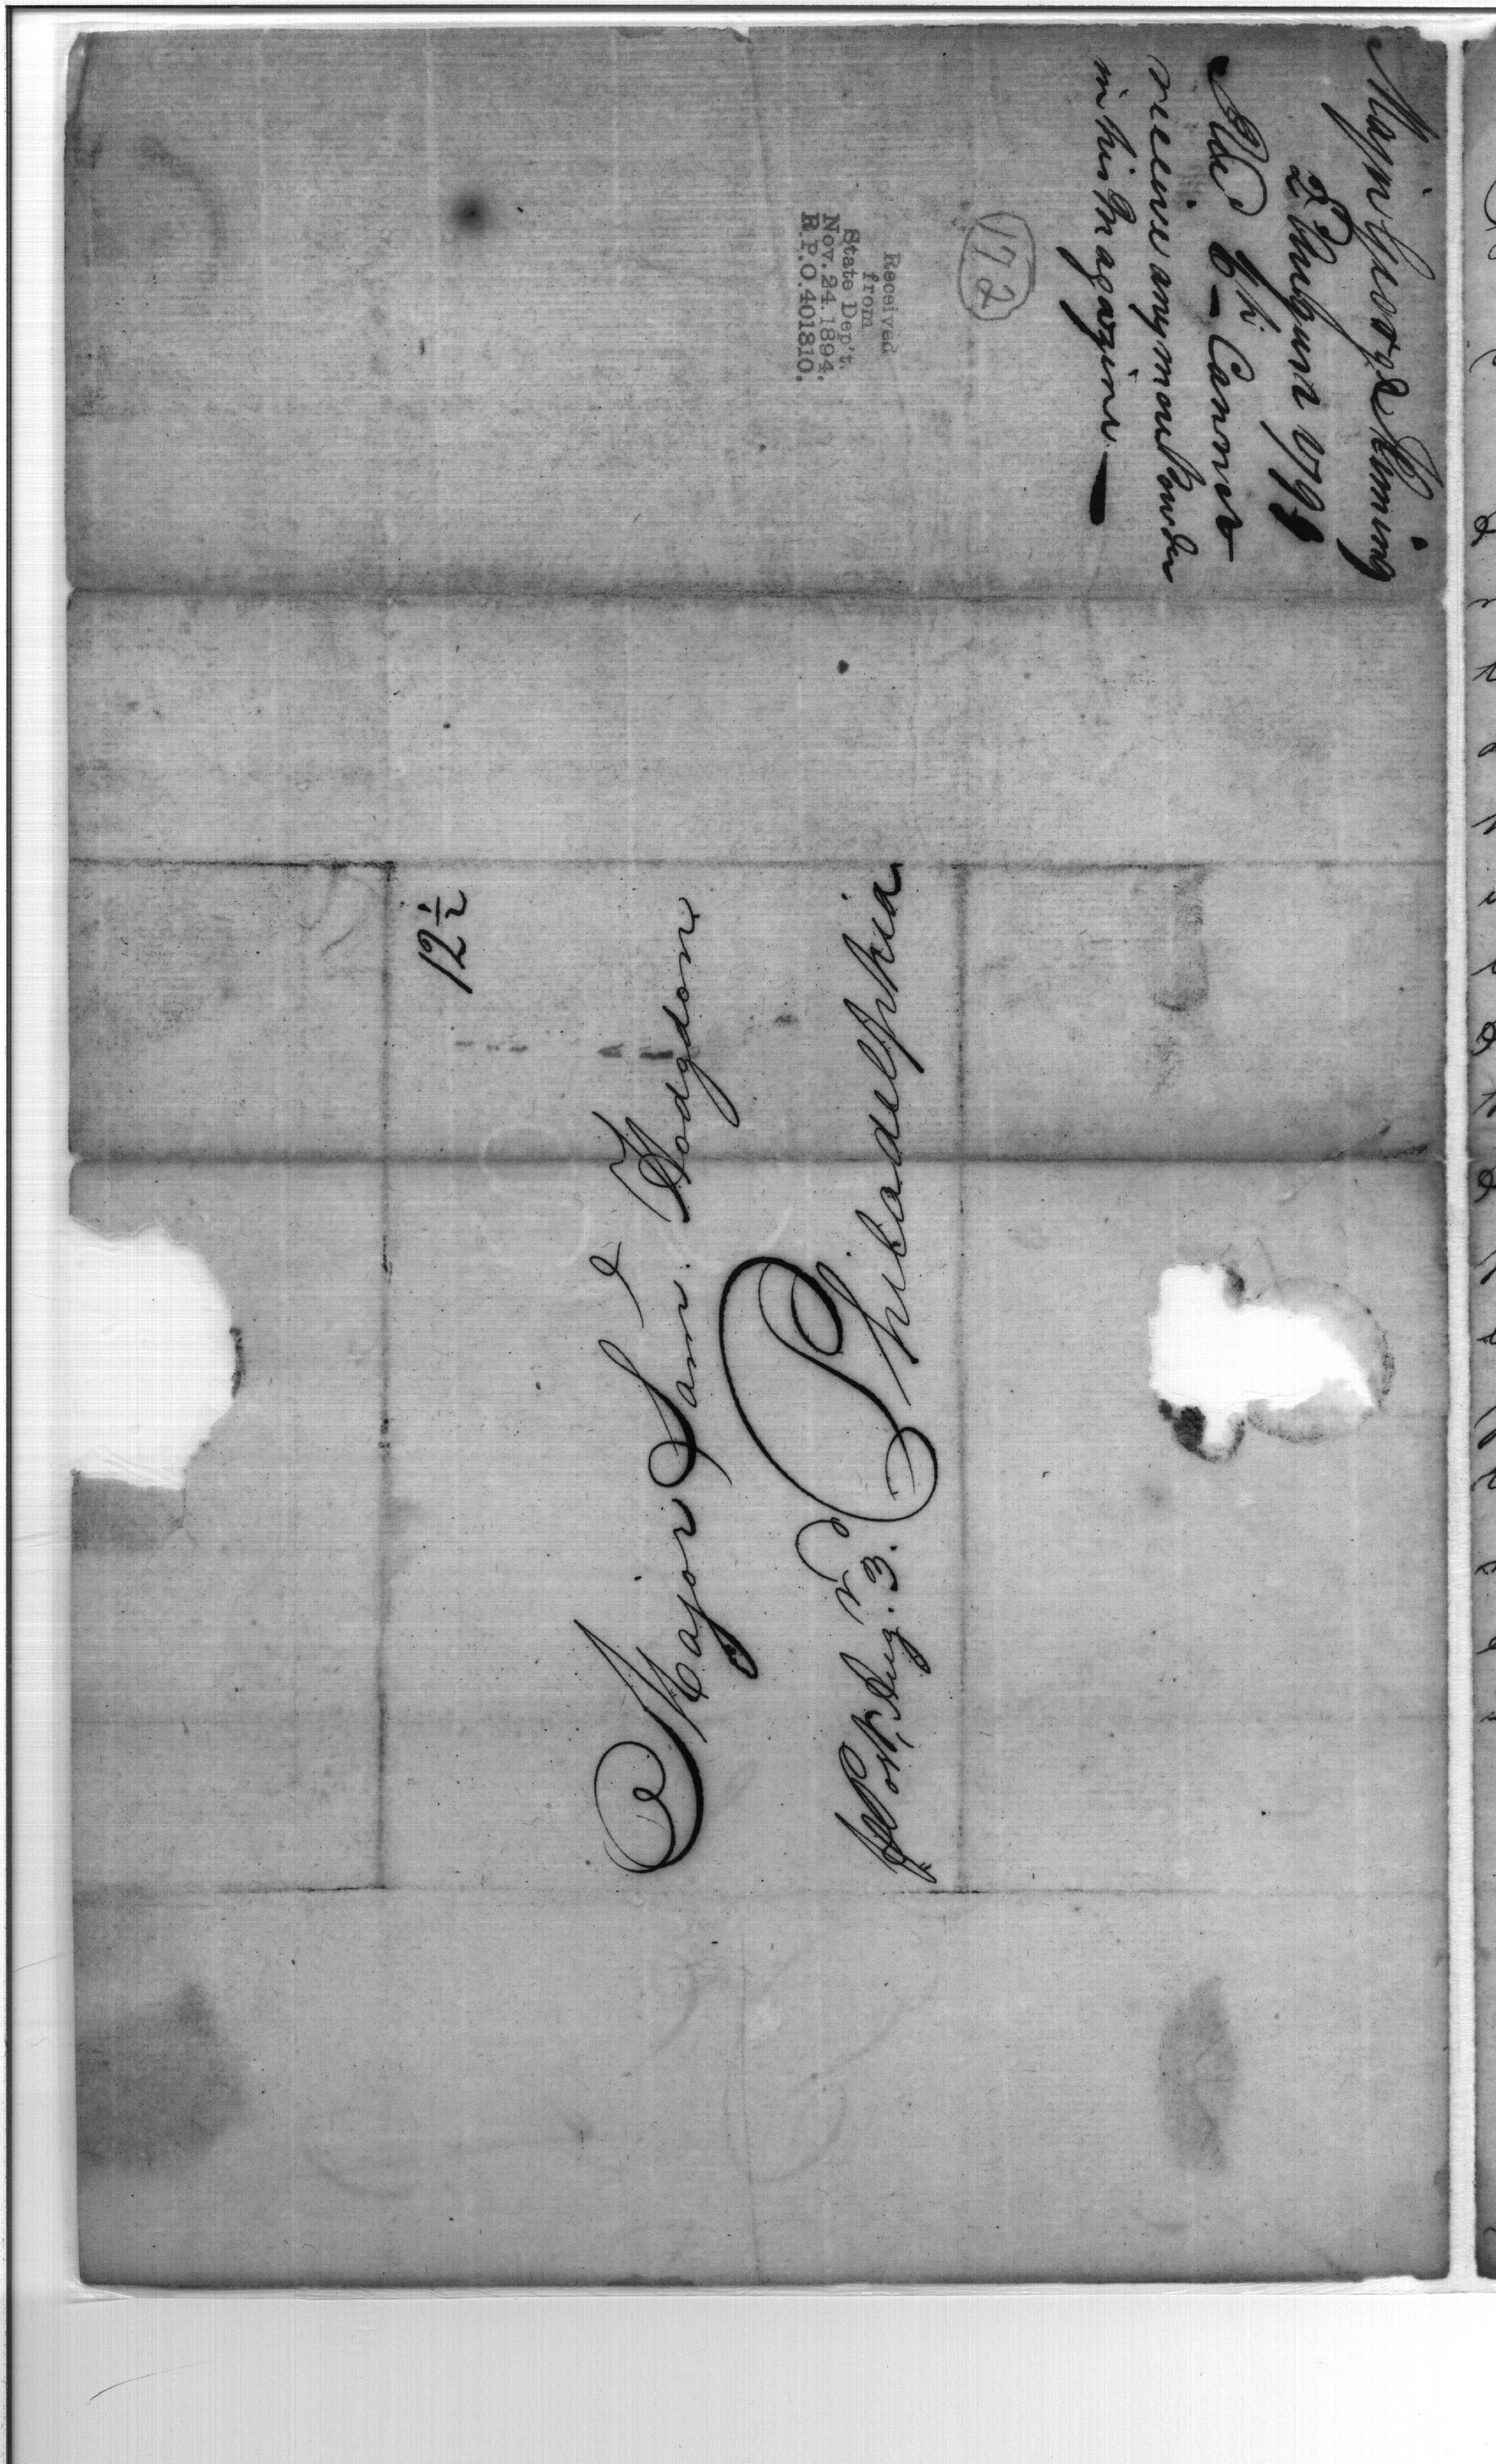 Major George Fleming
2d August 1791
Recd 6th Cannot
receive any more Powder
in his Magazine —
172
Received
from
State Dep't.
Nov. 24. 1894.
R.P.O. 401810.
12½
Major Saml. Hodgdon
Philadelphia
Post, Aug. 3.